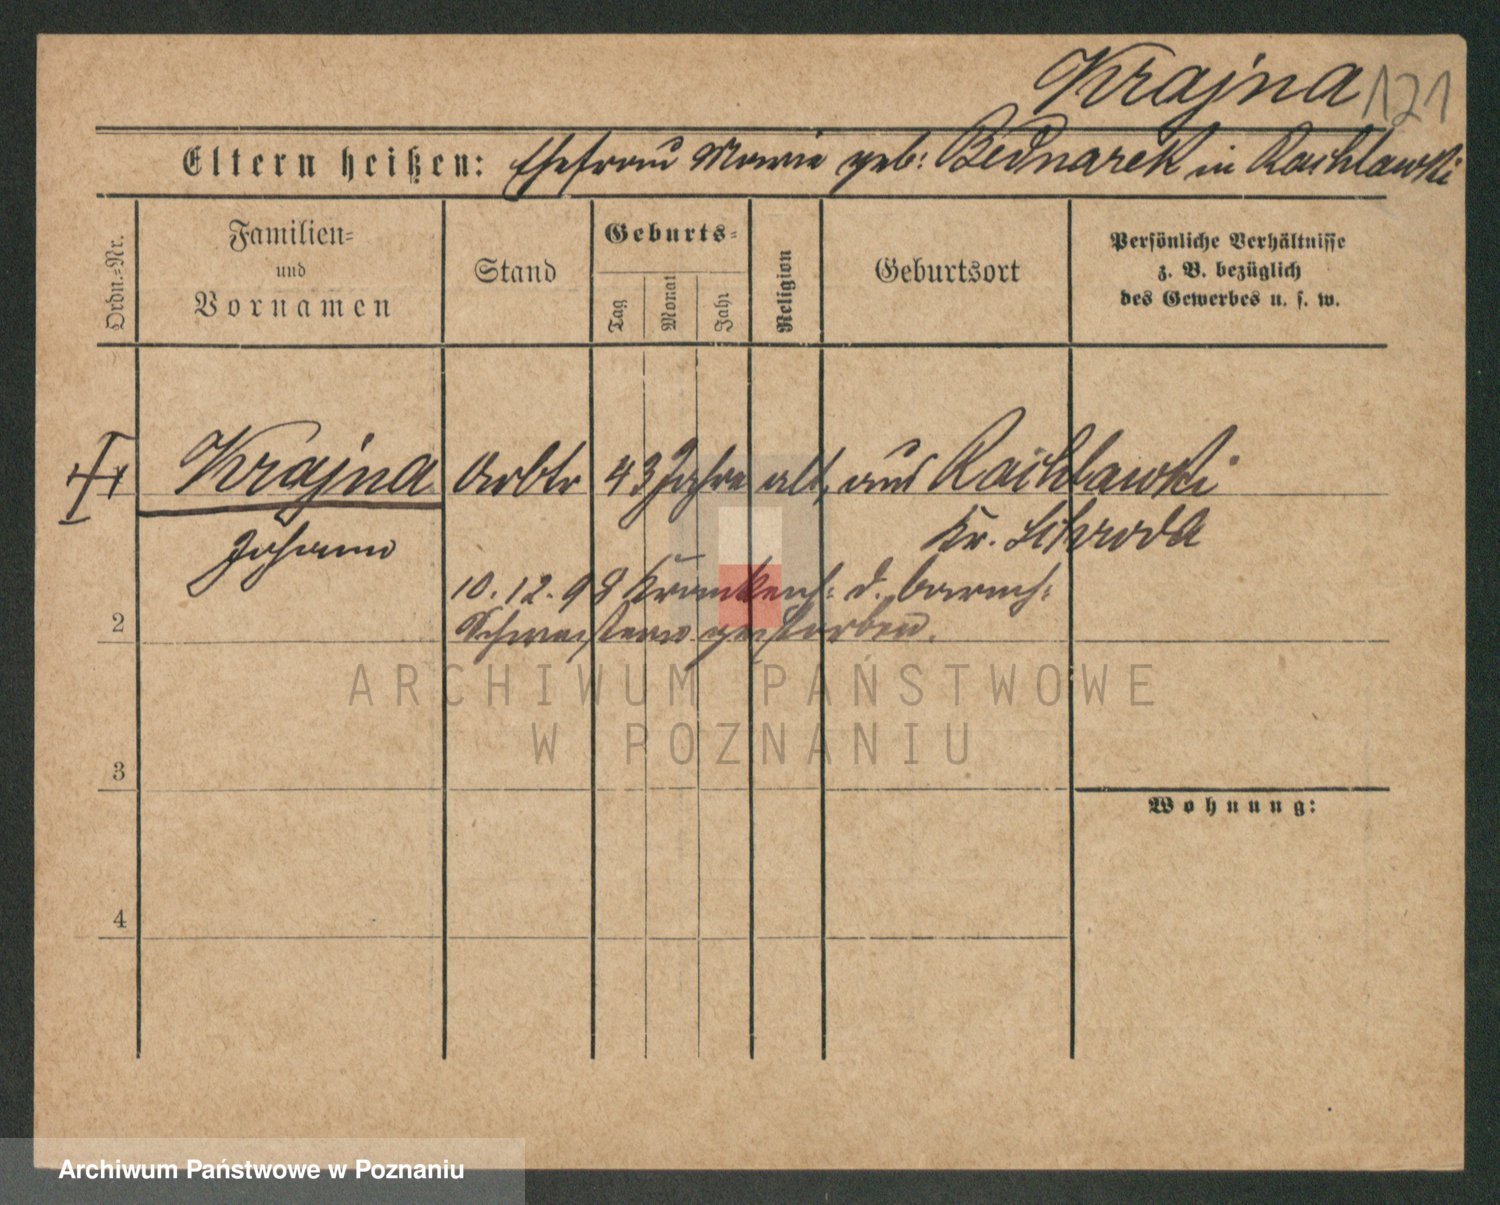 Krajna 121
Eltern heißen: Ehefrau Marie geb: Bednarek in Rachlawski
Ordn.=Nr.
Familien=
und
Vornamen
Stand
Geburts=
Tag
Monat
Jahr
Religion
Geburtsort
Persönliche Verhältnisse
z. B. bezüglich
des Gewerbes u. s. w.
Krajna Arbtr 43 Jahre alt, aus Rachlawski
Johann Kr. Schroda
10.12.98 Krankenh: d. barmh:
2 Schwestern gestorben.
ARCHIWUM PAŃSTWOWE
W POZNANIU
3
Wohnung:
4
Archiwum Państwowe w Poznaniu